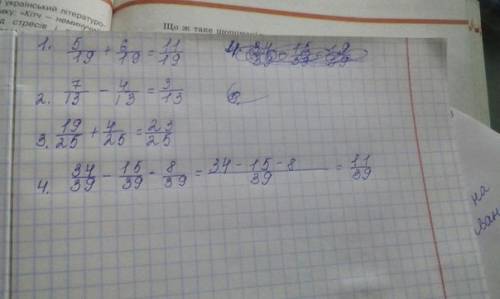 український літературо-
«Кітч — немину
стресів і
Що ж таке
1. 5/19 + 6/19 = 11/19
2. 7/13 - 4/13 = 3/13
3. 19/25 + 4/25 = 23/25
4. 34/39 - 15/39 - 8/39 = 34 - 15 - 8/39 = 11/39
на